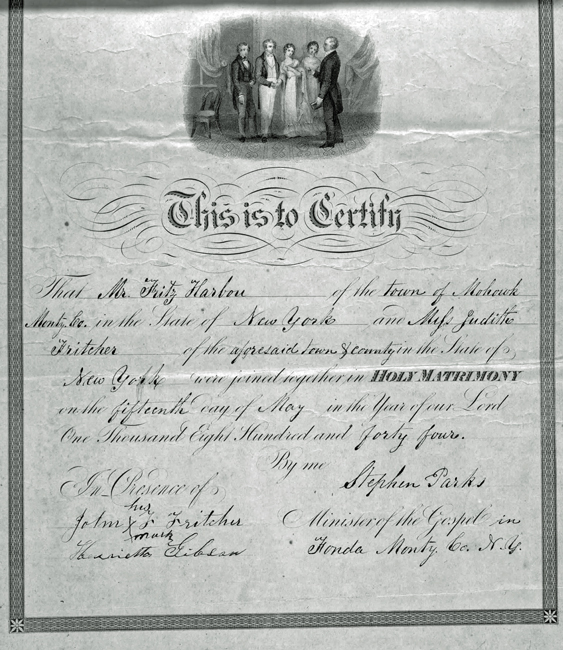 This is to Certify
That Mr. Fritz Harbou of the town of Mohawk
Monty. Co. in the State of New York and Miss Judith
Fritcher of the aforesaid town & county in the State of
New York were joined together in HOLY MATRIMONY
on the fifteenth day of May in the Year of our Lord
One Thousand Eight Hundred and forty four.
By me
Stephen Parks
In Presence of
her
John X Fritcher
mark
Henrietta Gibson
Minister of the Gospel in
Fonda Monty. Co. N.Y.